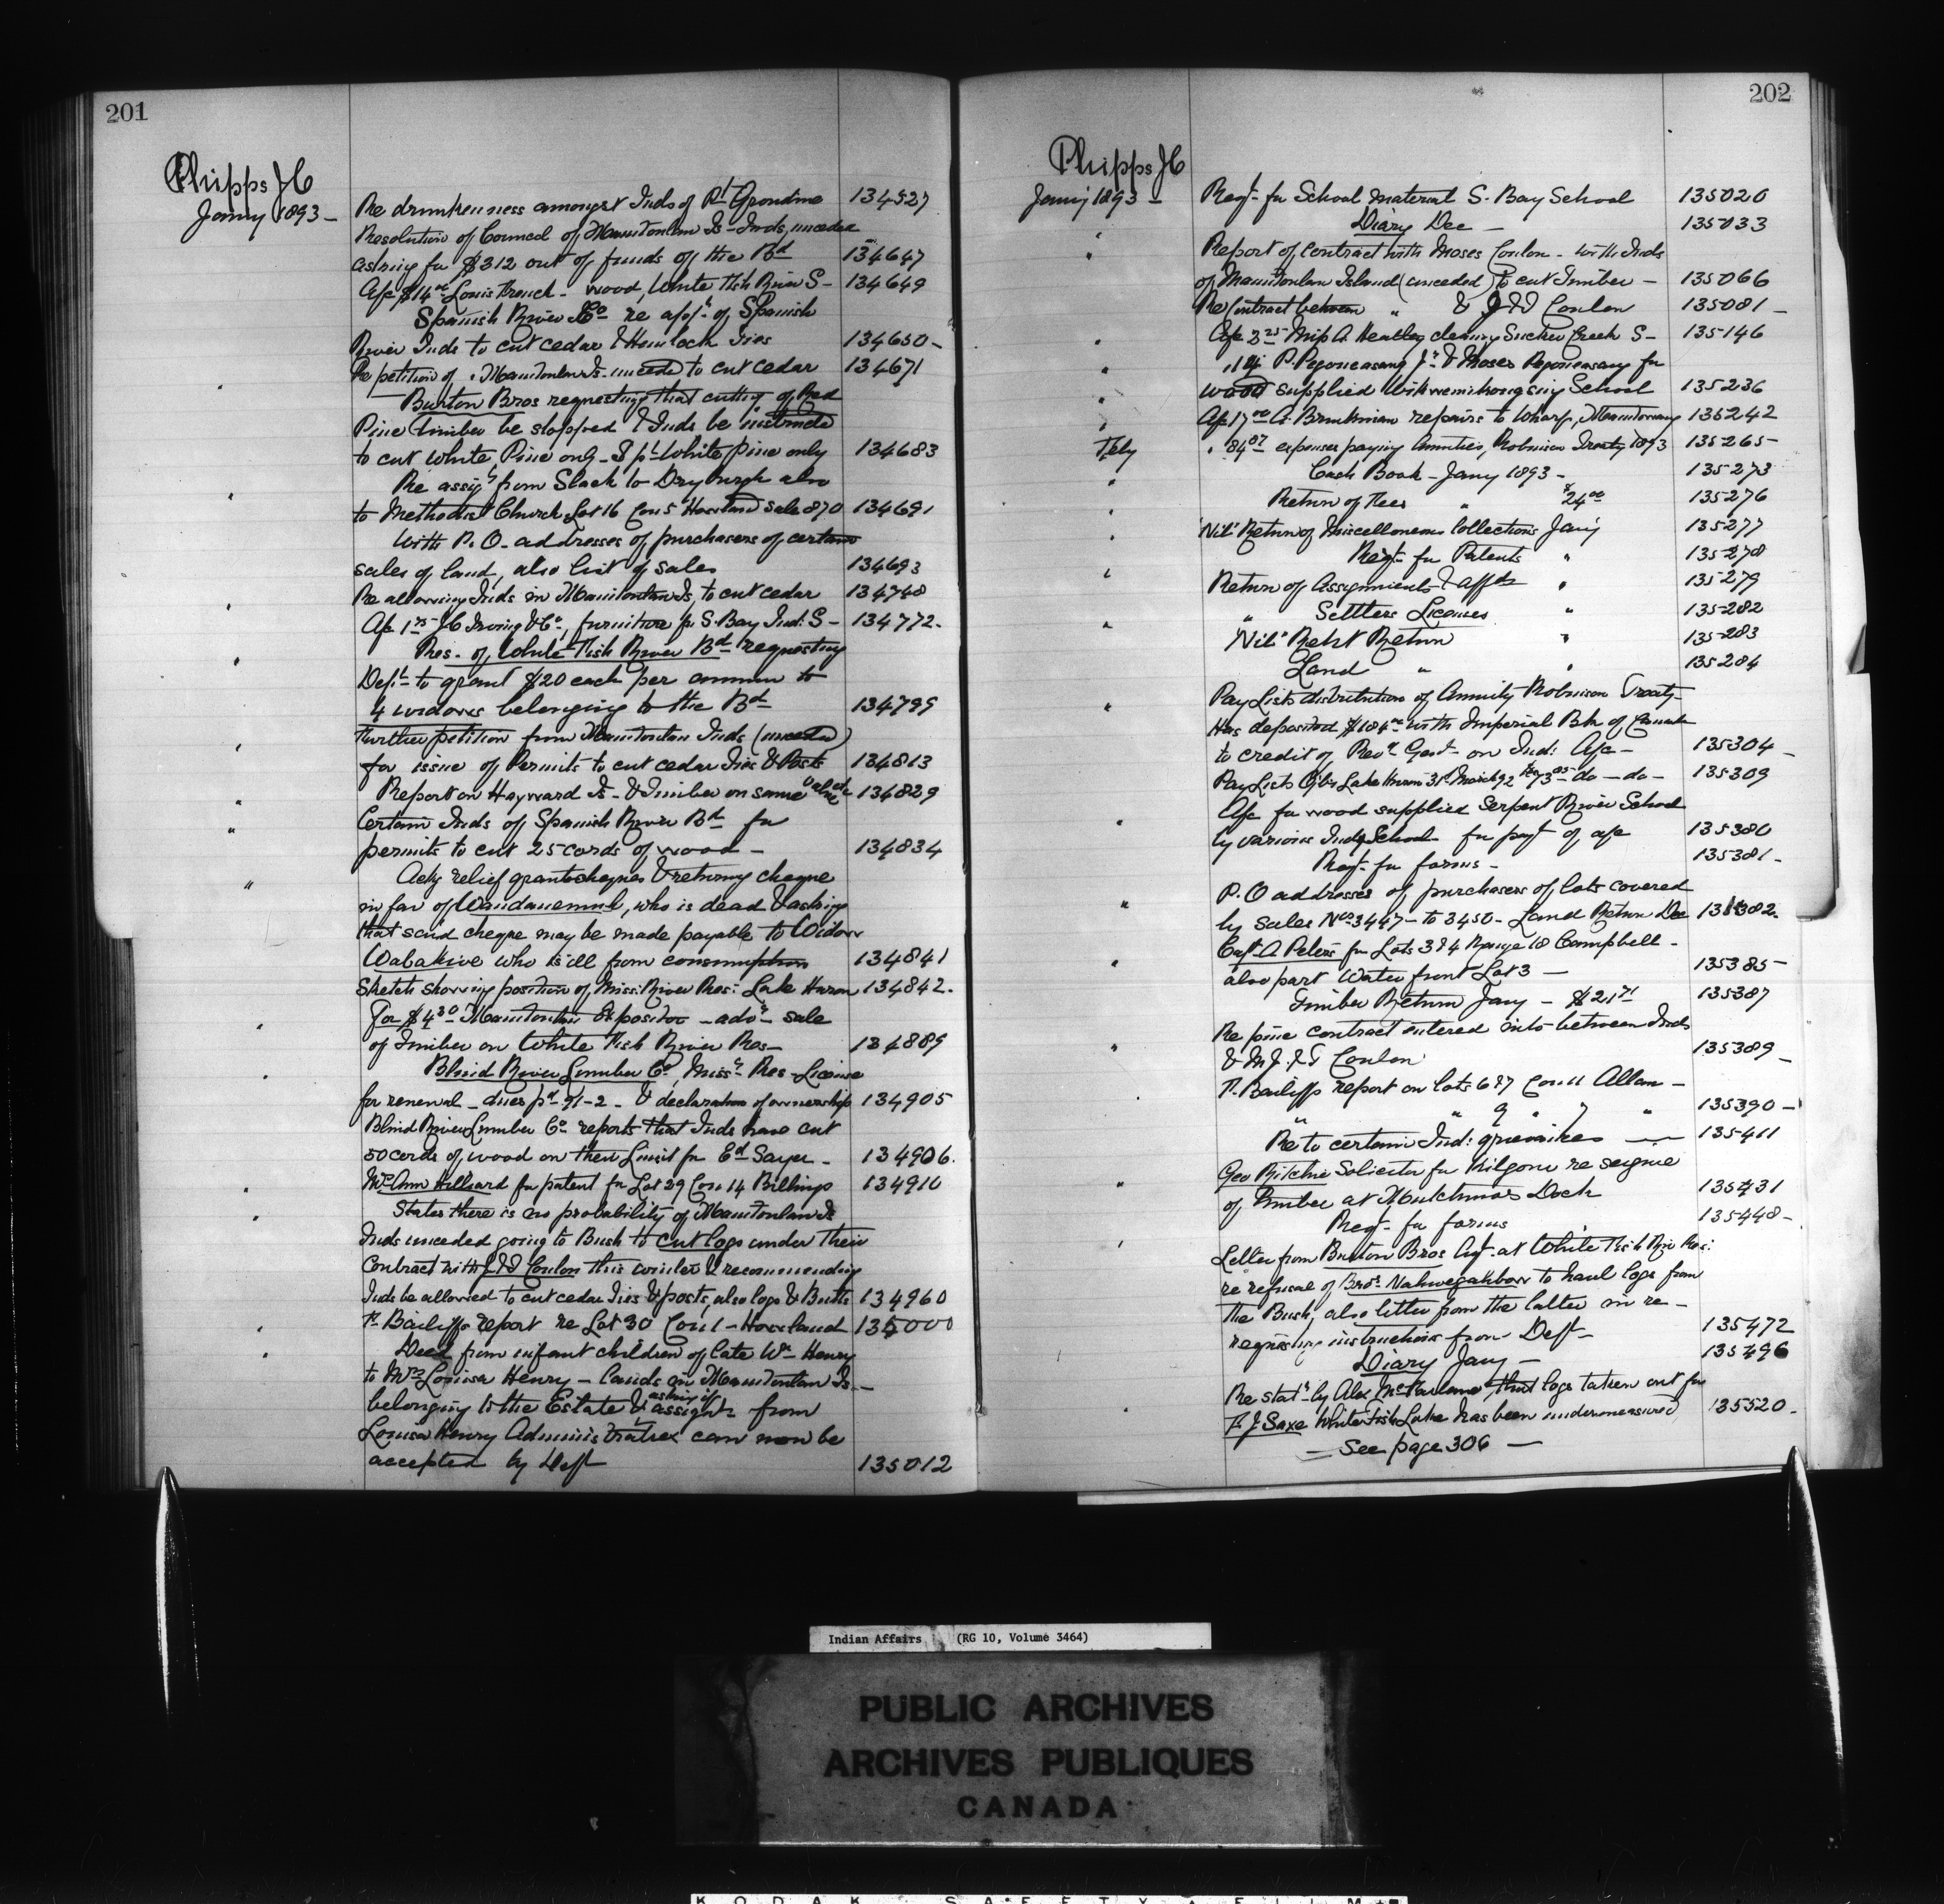 201
Phipps JC
Jany 1893 —
Re drunkenness amongst Inds of Pt Grondine 134527
Resolution of Council of Manitoulin Is. Inds, unceded
asking for $312 out of funds of the Bd 134647
A/c $14 Louis French - wood, White Fish River S- 134649
Spanish River Co re appn of Spanish
River Inds to cut cedar & Hemlock Ties 134650-
Re petition of Manitoulin Is. unceded to cut cedar 134671
Burton Bros requesting that cutting of Red
Pine timber be stopped & Inds be instructed
to cut White Pine only - White pine only 134683
Re assigt from Slack to Dryburgh also
to Methodist Church Lot 16 Con 5 Howland Sale 870 134691
With P.O. addresses of purchasers of certain
sales of land, also list of sales 134693
Re allowing Inds in Manitoulin Is, to cut cedar 134748
A/c JC Irving & Co, furniture fr S. Bay Ind: S- 134772.
Res. of White Fish River Bd requesting
Dept to grant $20 each per annum to
4 widows belonging to the Bd 134799
Further petition from Manitoulin Inds (unceded)
for issue of Permits to cut cedar Ties & Posts 134813
Report on Hayward Is. & Timber on same 134829
Certain Inds of Spanish River Bd for
permits to cut 25 cords of wood - 134834
Ackg relief grant cheques & returning cheque
in fav of, who is dead & asking
that said cheque may be made payable to Widow
Wabakive who is ill from consumption 134841
Sketch showing position of Miss: River Res: Lake Huron 134842.
For $4.30 Manitoulin Expositor - advg sale
of Timber on White Fish River Res- 134889
Blind River Lumber Co, Missa Res - License
for renewal - dues pd 91-2 - & declaration of ownership 134905
Blind River Lumber Co reports that Inds have cut
50 cords of wood on their Limit for Ed Sayer - 134906.
Mrs Ann Hilliard for patent for Lot 29 Con 14 Billings 134910
States there is no probability of Manitoulin Is
Inds unceded going to Bush to cut logs under their
Contract with J & T Conlon this winter & recommending
Inds be allowed to cut cedar Ties & posts, also logs & Butts 134960
Fr Bailiffs report re Lot 30 Con 1 - Howland 135000
Deed from infant children of late Wm Henry
to Mrs Louisa Henry - Lands in Manitoulin Is -
belonging to the Estate & asking if assignt from
Louisa Henry Administratrix can now be
accepted by Dept 135012
202
Phipps JC
Jany 1893 -
Reqt for School material S. Bay School 135020
Diary Dec - 135033
Report of Contract with Moses Conlon - with Inds
of Manitoulin Island (unceded) to cut Timber - 135066
Re Contract between " & J & T Conlon 135081 -
A/c Miss A Keatley cleaning Sucker Creek S- 135146
P. Pegoneasang Jr & Moses Pegoneasang for
wood supplied Wikwemikongsing School 135236
A/c 17.00 A. Brinkman repairs to Wharf, Manitowaning 135242
Feby
expenses paying Annuities, Robinson Treaty 1893 135265-
Cash Book - Jany 1893 - 135273
Return of Fees " $24.00 135276
"Nil" Return of Miscellaneous Collections Jany 135277
Reqt for Patents " 135278
Return of Assignments & affds " 135279
" Settlers Licenses " 135282
"Nil" Rent Return " 135283
Land " " 135284
Pay Lists distribution of Annuity Robinson Treaty -
Has deposited $184.00 with Imperial Bk of Canada
to credit of Recr Genl on Ind: A/c - 135304 -
Pay Lists Ojbs Lake Huron 31 March 92 - do - do - 135309
A/c for wood supplied Serpent River School
by various Inds School for payt of a/c 135380
Reqt for forms - 135381 -
P.O addresses of purchasers of lots covered
by sales Nos 3447 - to 3450 - Land Return Dec 135382.
Capt A Peters for Lots 3 & 4 Range 18 Campbell -
also part Water front Lot 3 - 135385 -
Timber Return Jany - $21.71 135387
Re pine contract entered into between Inds
& M J & T Conlon 135389 -
Fr. Bailiffs report on Lots 6 & 7 Con 11 Allan -
" " 9 " 7 " 135390 -
Re to certain Ind: grievances — 135411
Geo Ritchie Solicitor for Kilgour re seizure
of timber at Hutchinsons Dock 135431
Reqt for forms 135448 -
Letter from Burton Bros Agt at White Fish Riv Res:
re refusal of Bros. Nahwegahbow to haul logs from
the Bush, also letter from the latter in re -
requesting instructions from Dept - 135472
Diary Jany - 135496
Re statt by Alex McFarlane that logs taken out for
F. J. Saxe Whitefish Lake has been undermeasured 135520 -
— See page 306 —
Indian Affairs (RG 10, Volume 3464)
PUBLIC ARCHIVES
ARCHIVES PUBLIQUES
CANADA
KODAK SAFETY FILM